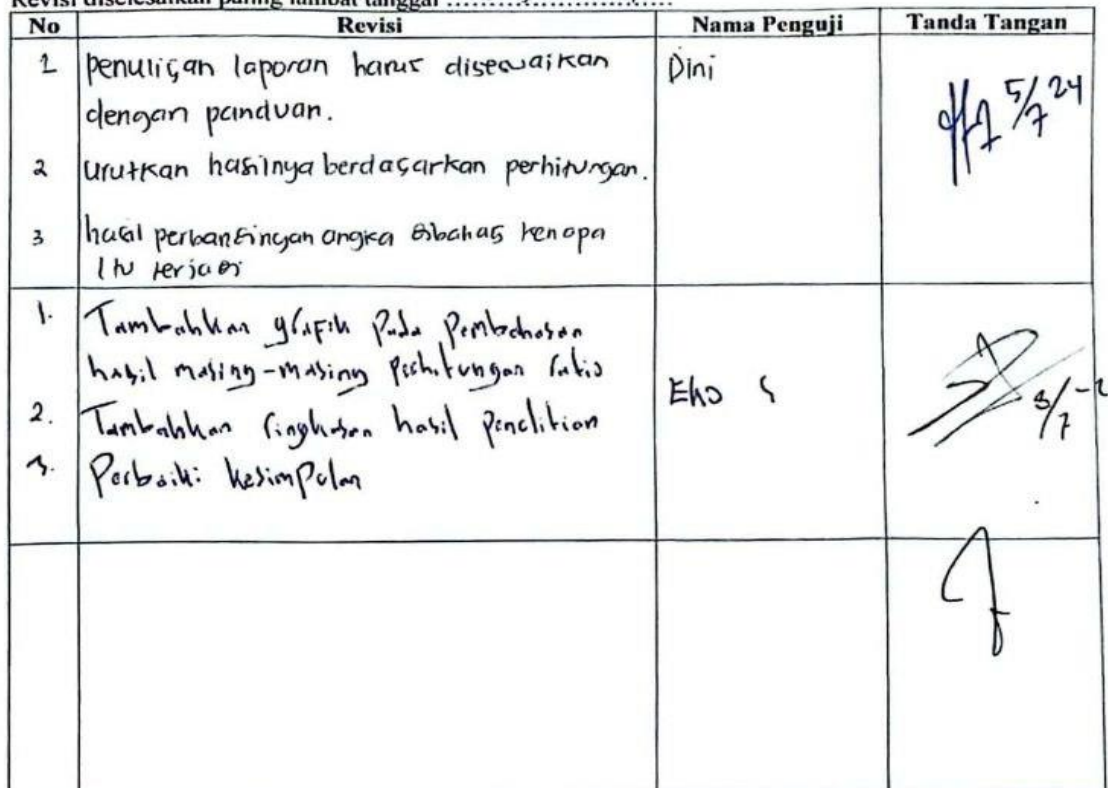 Revisi diselesaikan paling lambat tanggal ................................
No Revisi Nama Penguji Tanda Tangan
1 penulisan laporan harus disesuaikan Dini
dengan panduan.
5/7 24
2 Urutkan hasilnya berdasarkan perhitungan.
3 hasil perbandingan angka dibahas kenapa
itu terjadi
1. Tambahkan grafik Pada Pembahasan
hasil masing-masing Perhitungan ratio
Eko S
2. Tambahkan ringkasan hasil penelitian
3. Perbaiki kesimpulan